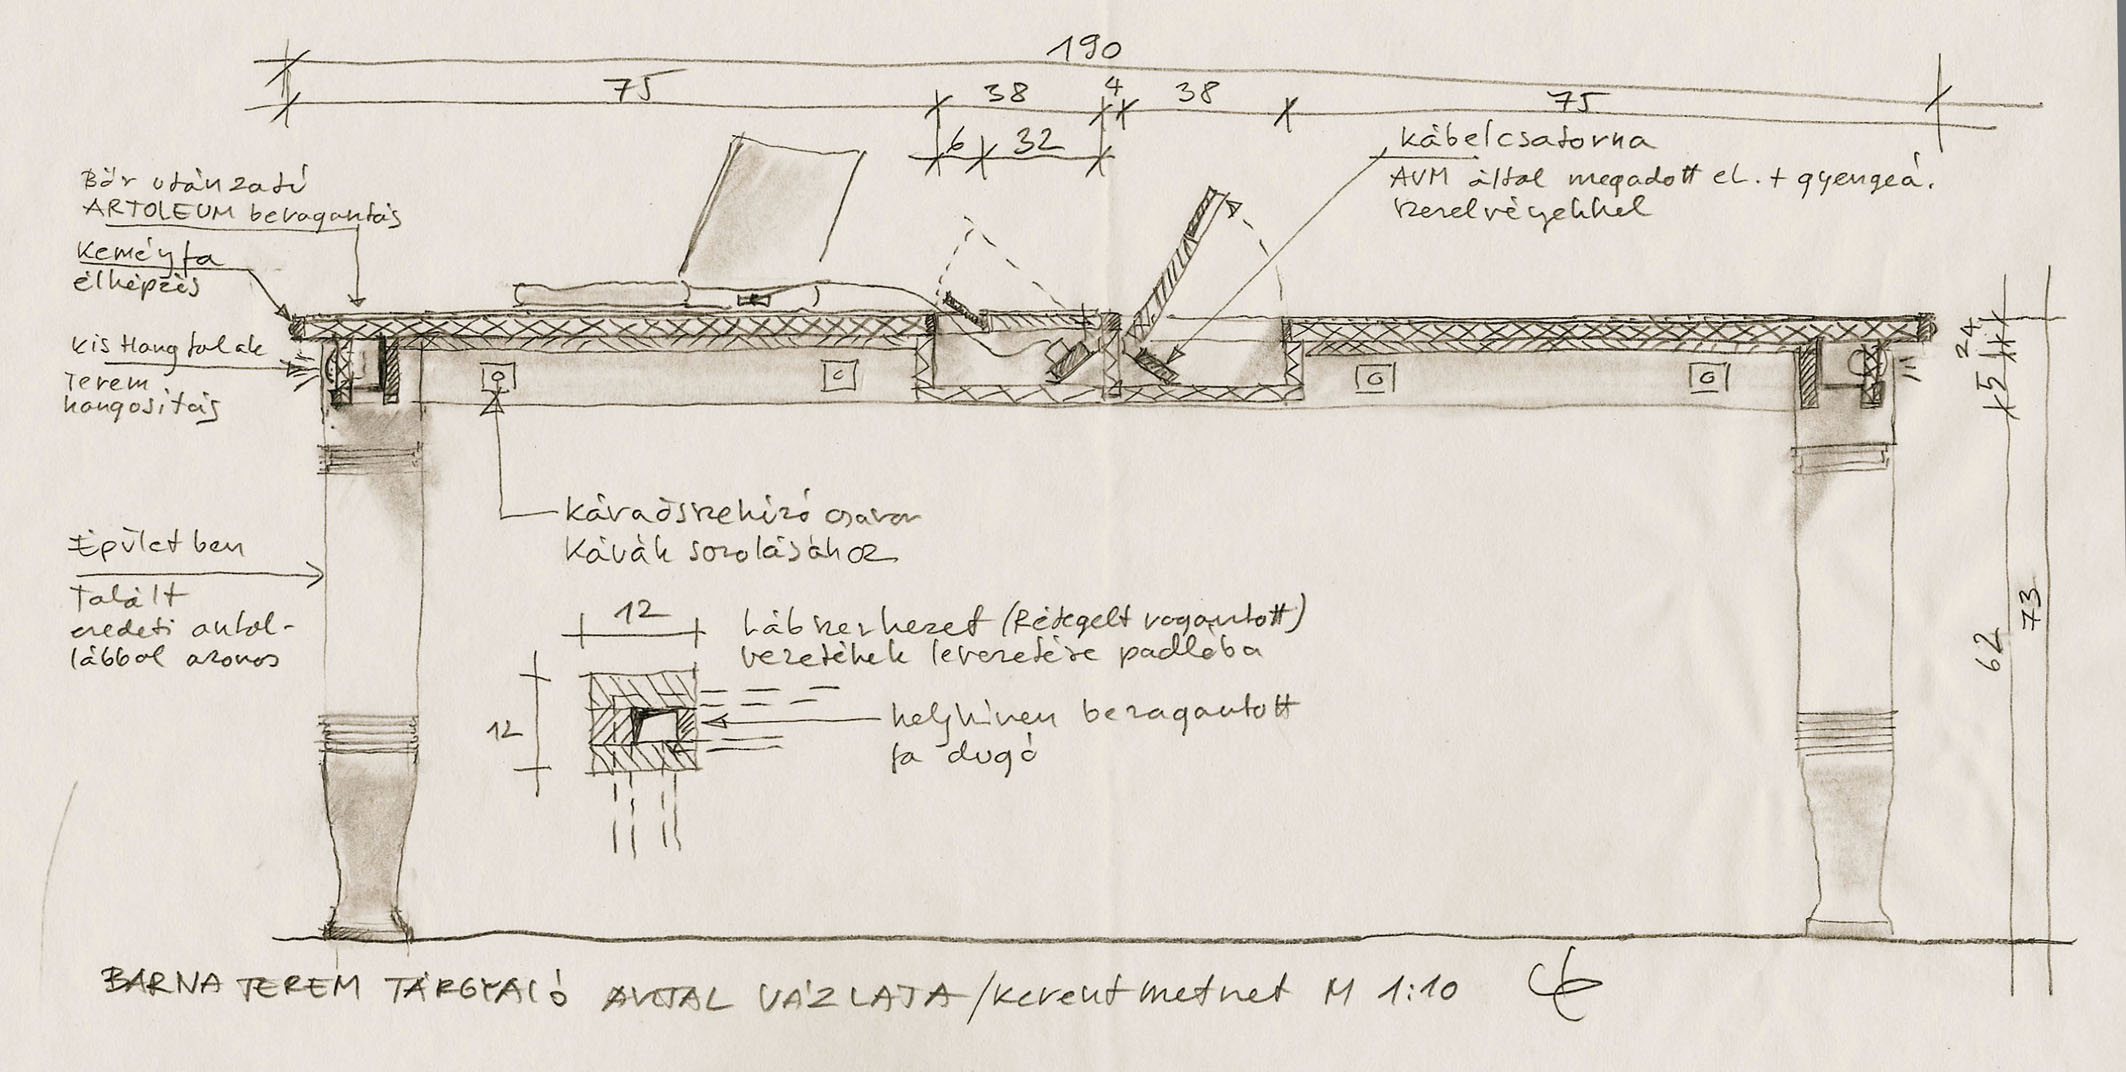 190
75 38 4 38 75
6 32
kábelcsatorna
AVM által megadott el. + gyengeá.
szerelvényekkel
Bőr utánzatú
ARTOLEUM beragasztás
Keményfa
élképzés
kis Hangfalak
Terem
hangosítás
24
5
62
73
Kávaösszehúzó csavar
Kávák sorolásához
Épületben
Talált
eredeti asztal-
lábbal azonos
12
12
Lábszerkezet (Rétegelt ragasztott)
vezetékek levezetése padlóba
helyszínen beragasztott
fa dugó
BARNA TEREM TÁRGYALÓ ASZTAL VÁZLATA / kereszt metszet M 1:10